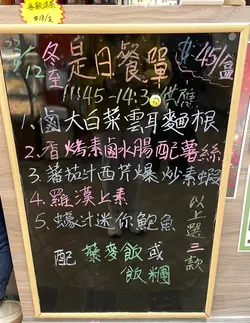 22/12 冬至 是日餐單 $45/盒
11:45-14:30供應
1.鹵大白菜雲耳麵根
2.香烤素鹵水腸配薯絲
3.蕃茄汁西芹爆炒素蝦
4.羅漢上素
5.蠔汁迷你鮑魚
以上選三款
配 蕎麥飯或
飯糰